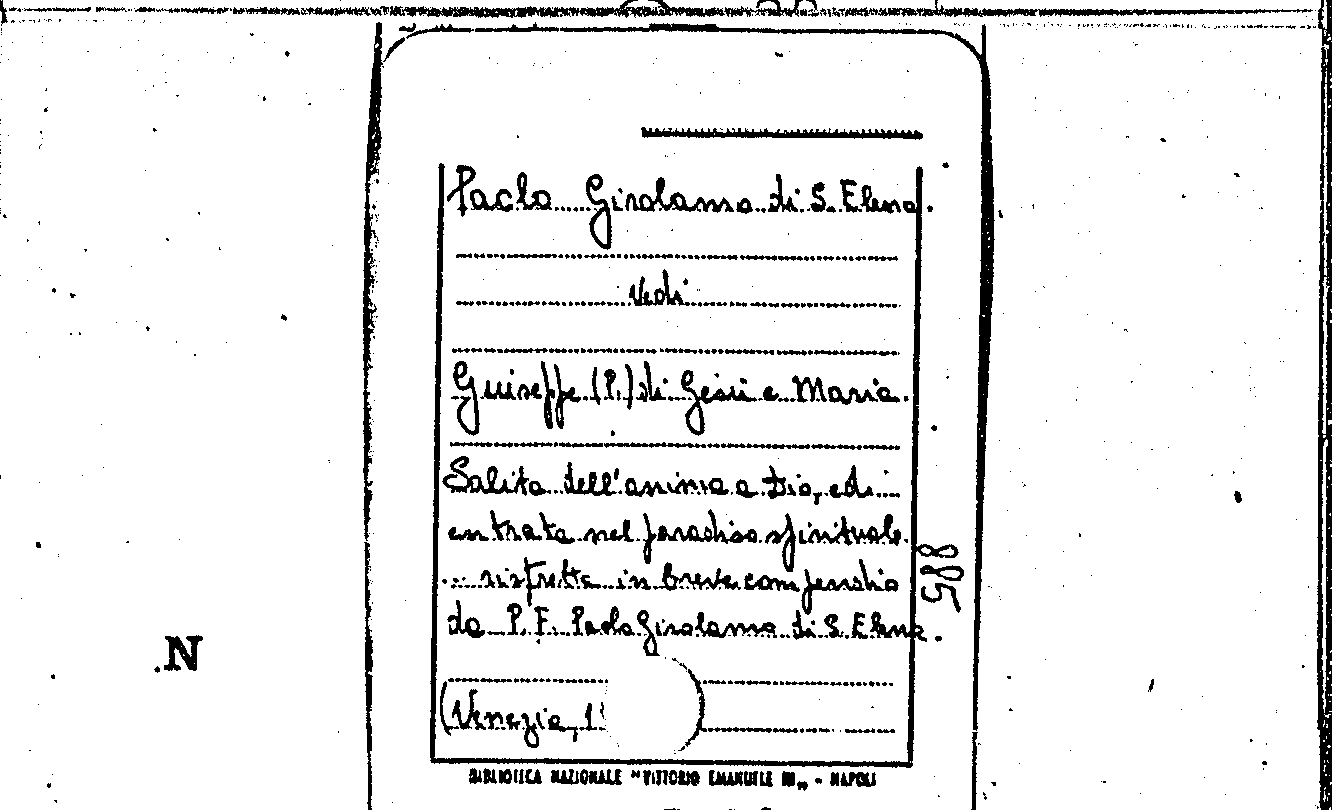 Paolo Girolamo di S. Elena.
Vedi
Giuseppe (P.) di Gesù e Maria.
Salita dell'anima a Dio, e di
entrata nel paradiso spirituale
... ristretta in breve compendio
da P. F. Paolo Girolamo di S. Elena.
(Venezia, 1
885
.N
BIBLIOTECA NAZIONALE "VITTORIO EMANUELE III„ - NAPOLI